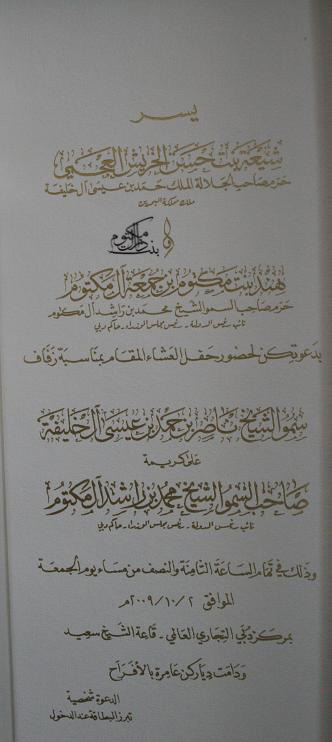 يسر
شيعة بنت حسن الخريش العجمي
حرم صاحب الجلالة الملك حمد بن عيسى آل خليفة
ملك مملكة البحرين
و
هند بنت مكتوم بن جمعة آل مكتوم
حرم صاحب السمو الشيخ محمد بن راشد آل مكتوم
نائب رئيس الدولة - رئيس مجلس الوزراء - حاكم دبي
بدعوتكن لحضور حفل العشاء المقام بمناسبة زفاف
سمو الشيخ ناصر بن حمد بن عيسى آل خليفة
على كريمة
صاحب السمو الشيخ محمد بن راشد آل مكتوم
نائب رئيس الدولة - رئيس مجلس الوزراء - حاكم دبي
وذلك في تمام الساعة الثامنة والنصف من مساء يوم الجمعة
الموافق ٢ / ١٠ / ٢٠٠٩م
بمركز دبي التجاري العالمي - قاعة الشيخ سعيد
ودامت دياركن عامرة بالأفراح
الدعوة شخصية
تبرز البطاقة عند الدخول